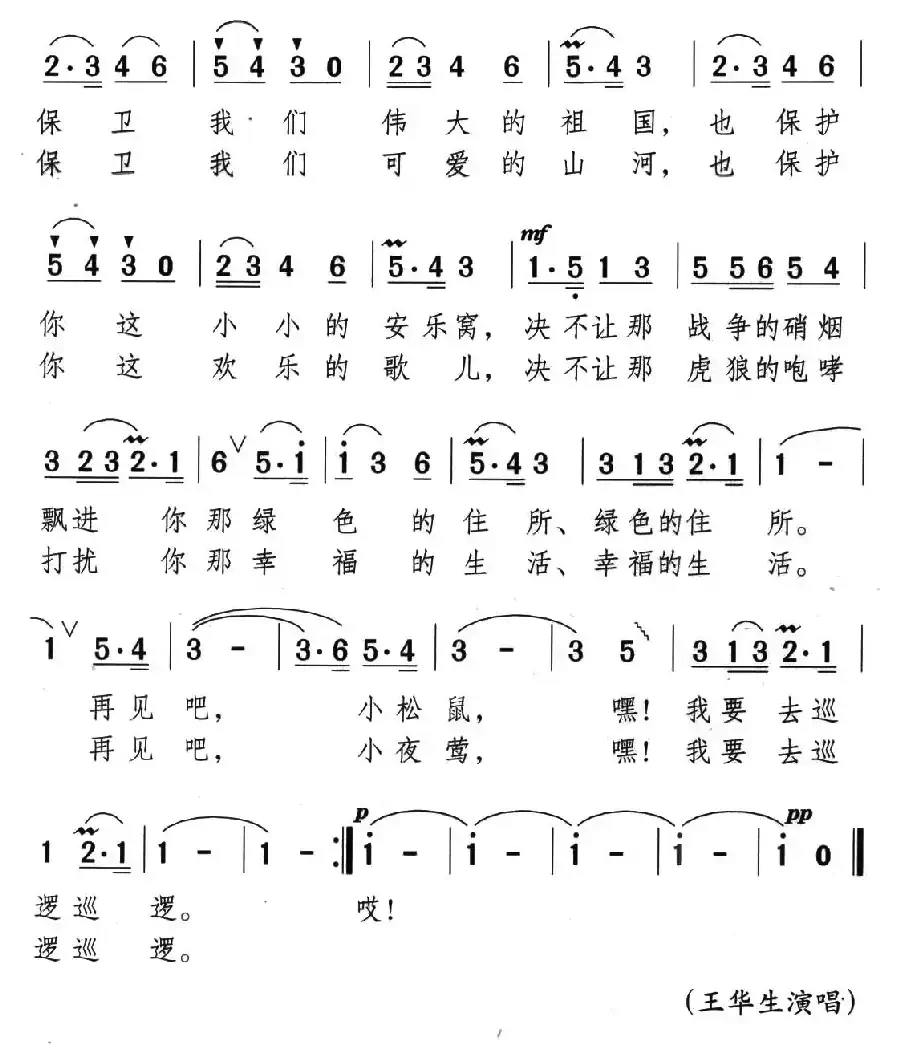 2·3 4 6 | 5 4 3 0 | 2 3 4 6 | 5·4 3 | 2·3 4 6 |
保 卫 我 们 伟 大 的 祖 国，也 保 护
保 卫 我 们 可 爱 的 山 河，也 保 护
5 4 3 0 | 2 3 4 6 | 5·4 3 | mf 1·5 1 3 | 5 5 6 5 4 |
你 这 小 小 的 安 乐 窝，决 不 让 那 战 争 的 硝 烟
你 这 欢 乐 的 歌 儿，决 不 让 那 虎 狼 的 咆 哮
3 2 3 2·1 | 6 ∨ 5·i | i 3 6 | 5·4 3 | 3 1 3 2·1 | 1 - |
飘 进 你 那 绿 色 的 住 所、绿 色 的 住 所。
打 扰 你 那 幸 福 的 生 活、幸 福 的 生 活。
1 ∨ 5·4 | 3 - | 3·6 5·4 | 3 - | 3 5 | 3 1 3 2·1 |
再 见 吧，小 松 鼠，嘿！我 要 去 巡
再 见 吧，小 夜 莺，嘿！我 要 去 巡
1 2·1 | 1 - | 1 - :‖ p i - | i - | i - | i - | pp i 0 ‖
逻 巡 逻。 哎！
逻 巡 逻。
（王华生演唱）